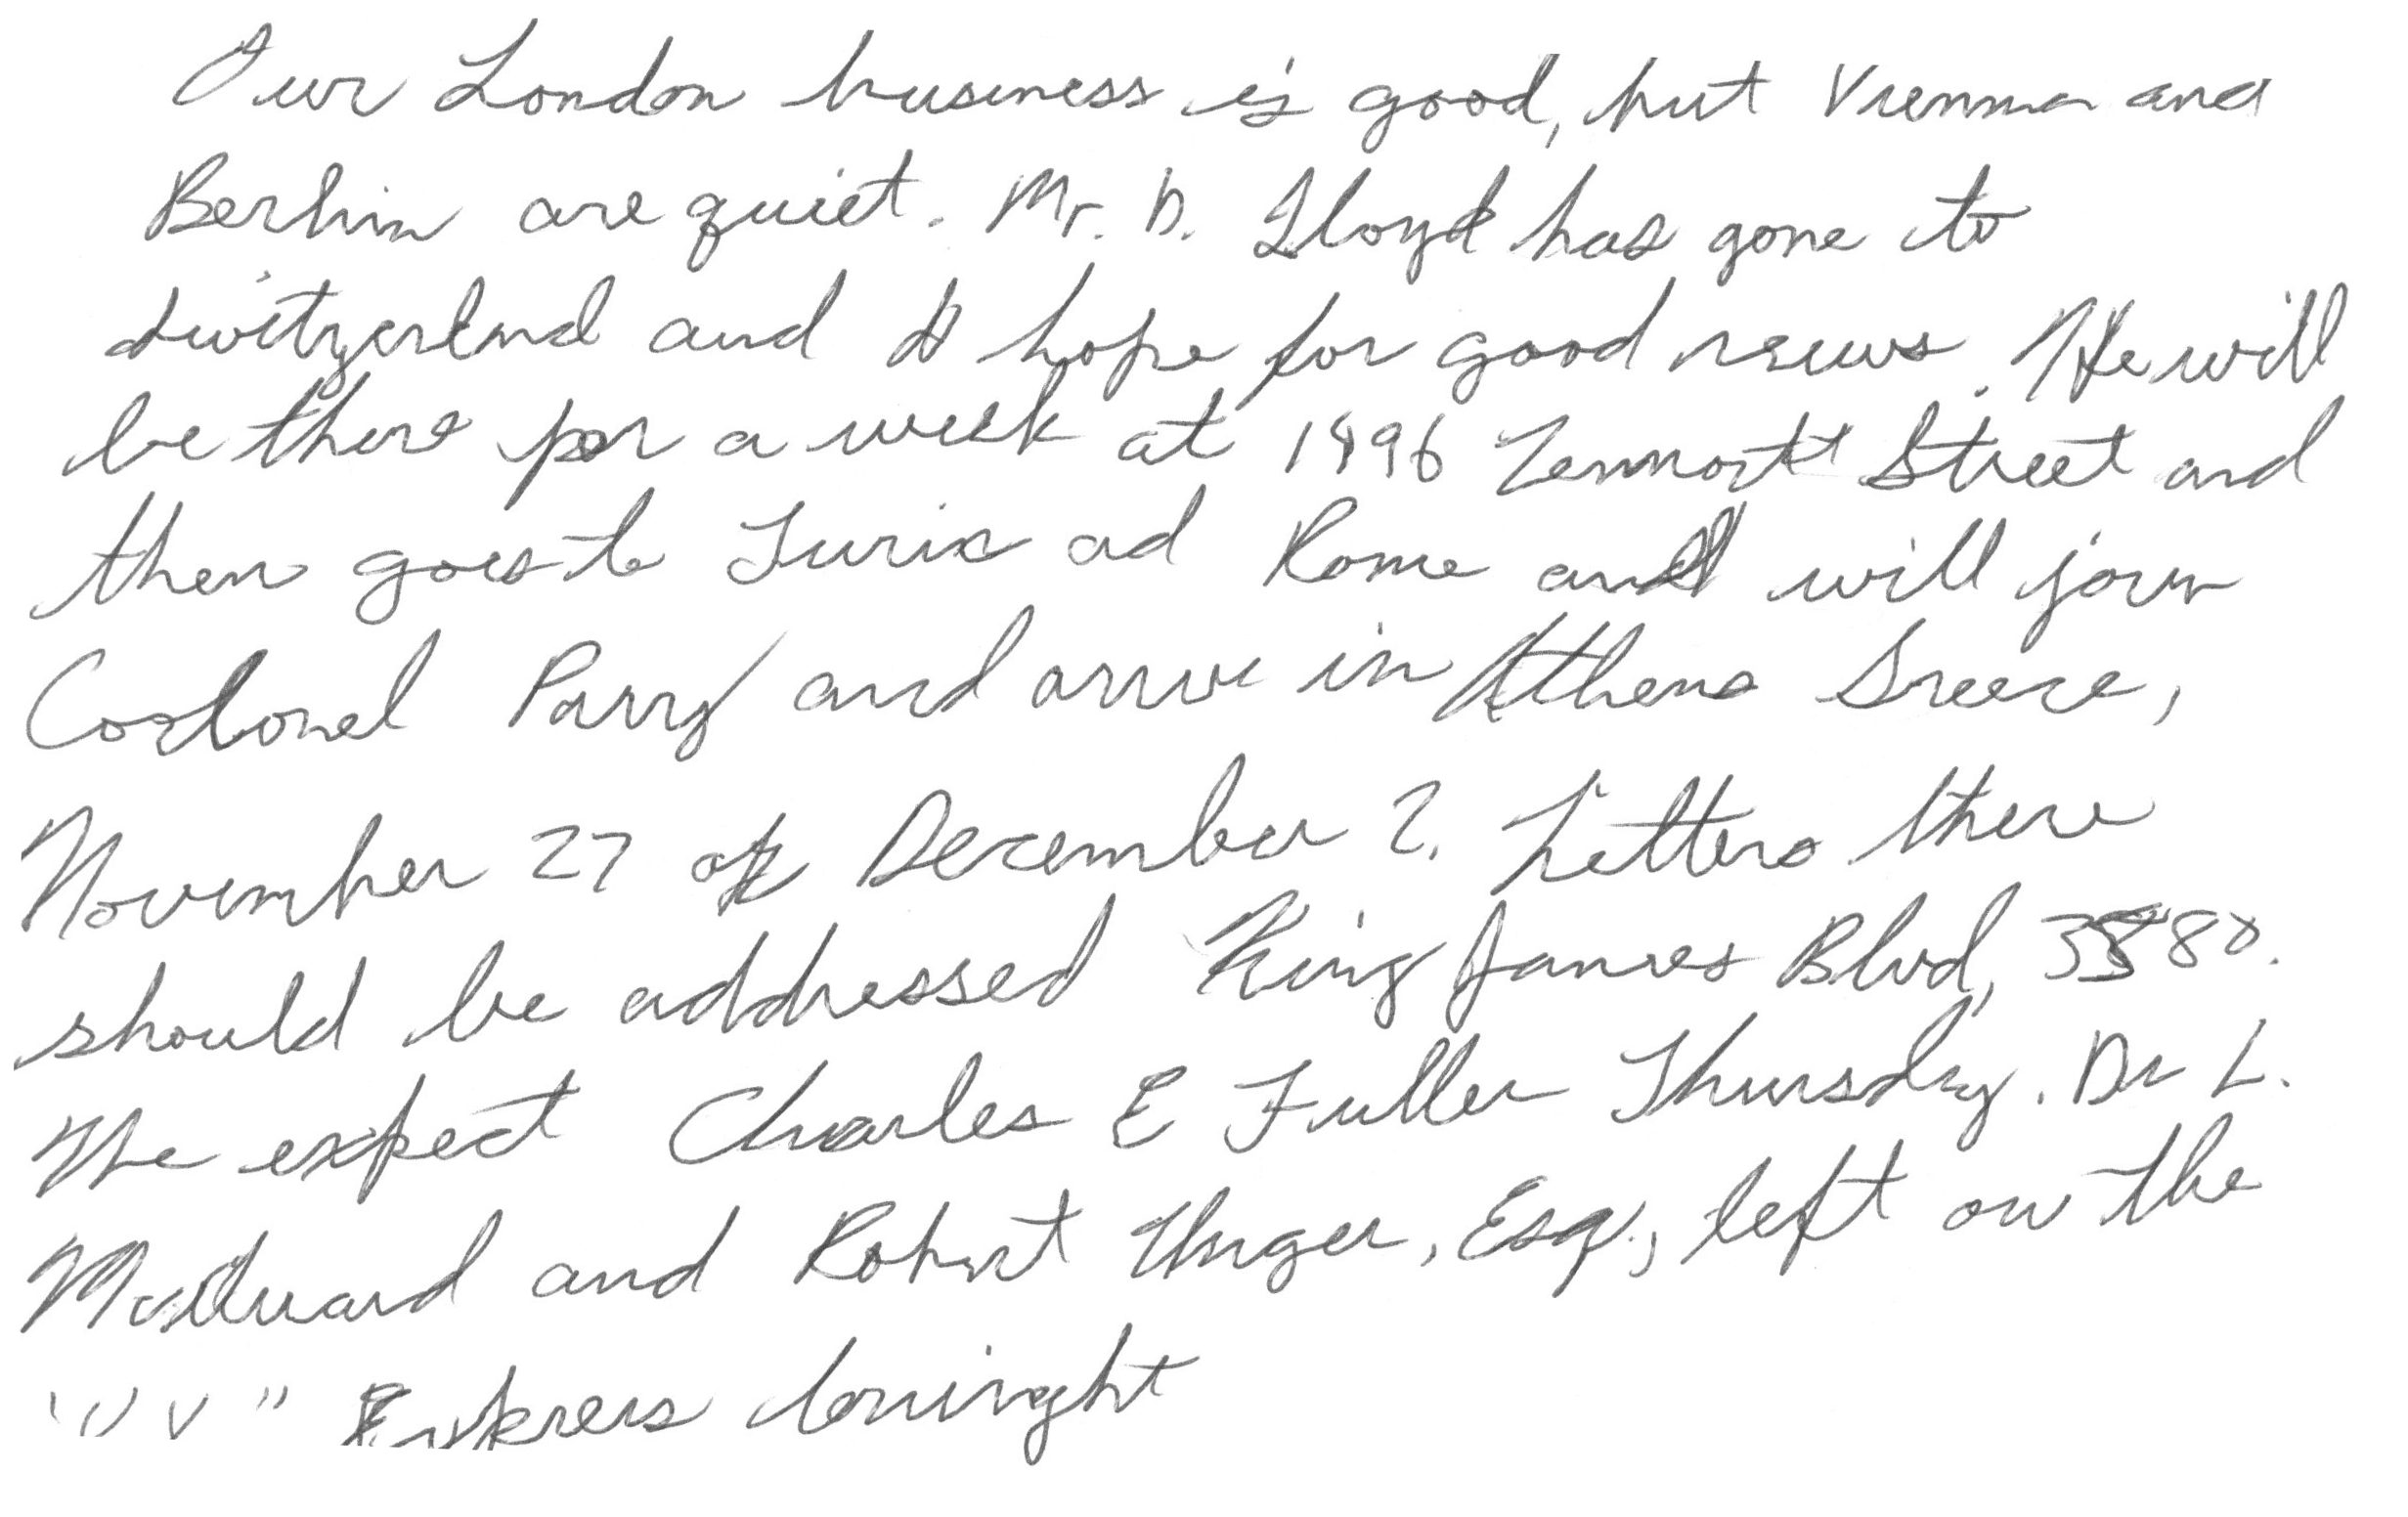 Our London business is good, but Vienna and
Berlin are quiet. Mr. D. Lloyd has gone to
Switzerlnd and I hope for good news. He will
be there for a week at 1996 Zermott Street and
then goes to Turin ad Rome and will join
Colonel Parry and arrive in Athens Greece,
November 27 or December 2. Letters there
should be addressed King James Blvd, 3580.
We expect Charles E Fuller Thursday. Dr L.
McQuaid and Robert Unger, Esq., left on the
Express tonight